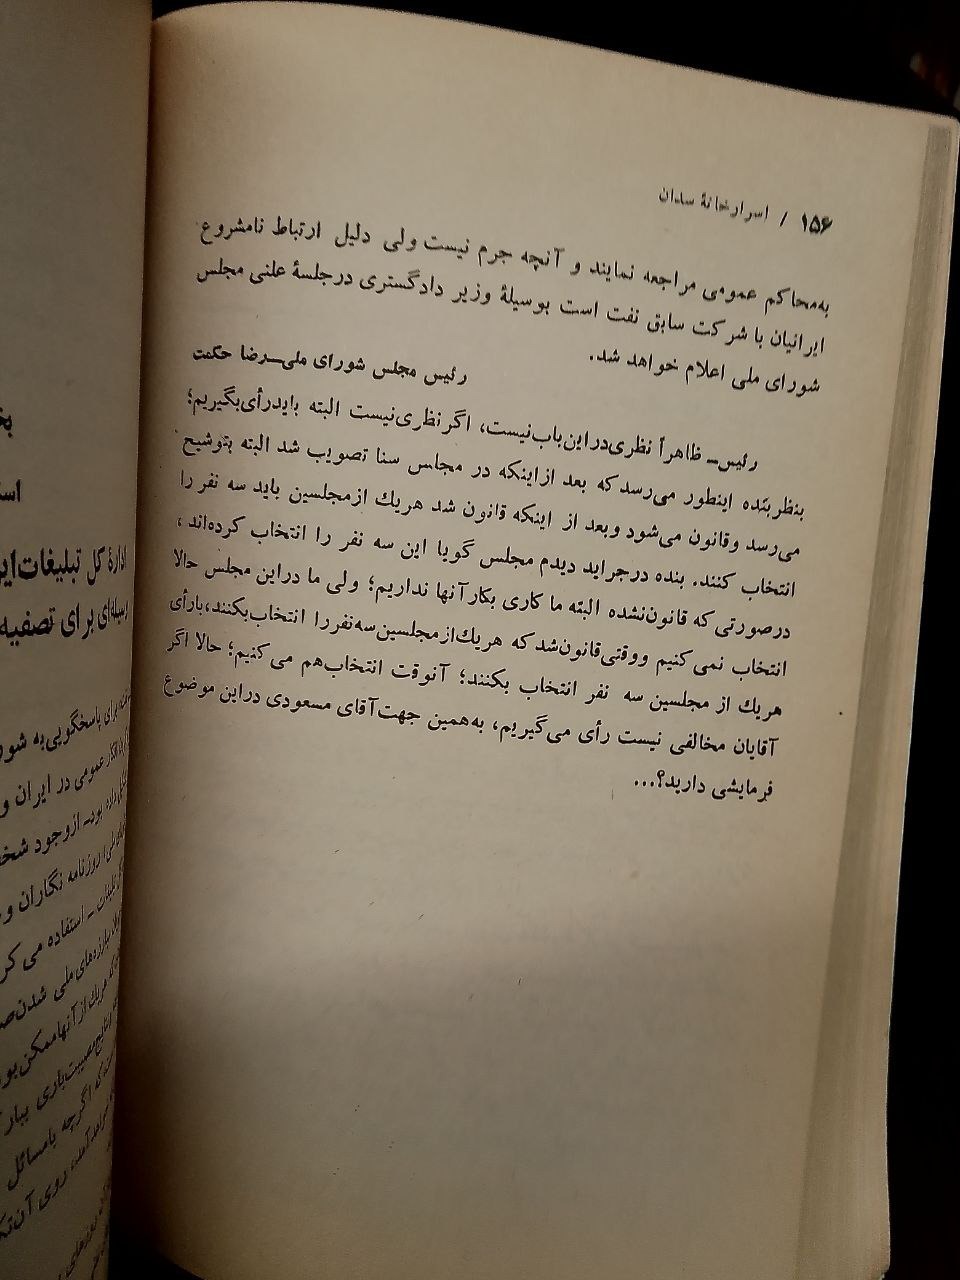 ۱۵۶ / اسرار خانهٔ سدان
به‌محاکم عمومی مراجعه نمایند و آنچه جرم نیست ولی دلیل ارتباط نامشروع
ایرانیان با شرکت سابق نفت است بوسیلهٔ وزیر دادگستری درجلسهٔ علنی مجلس
شورای ملی اعلام خواهد شد.
رئیس مجلس شورای ملی_رضا حکمت
رئیس_ ظاهراً نظری‌دراین‌باب‌نیست، اگر نظری‌نیست البته بایدرأی‌بگیریم؛
بنظربنده اینطور می‌رسد که بعد ازاینکه در مجلس سنا تصویب شد البته بتوشیح
می‌رسد وقانون می‌شود وبعد از اینکه قانون شد هریك ازمجلسین باید سه نفر را
انتخاب کنند. بنده درجراید دیدم مجلس گویا این سه نفر را انتخاب کرده‌اند،
درصورتی که قانون‌نشده البته ما کاری بکارآنها نداریم؛ ولی ما دراین مجلس حالا
انتخاب نمی‌کنیم ووقتی‌قانون‌شد که هریك‌ازمجلسین‌سه‌نفررا انتخاب‌بکنند،بارأی
هریك از مجلسین سه نفر انتخاب بکنند؛ آنوقت انتخاب‌هم می‌کنیم؛ حالا اگر
آقایان مخالفی نیست رأی می‌گیریم، به‌همین جهت‌آقای مسعودی دراین موضوع
فرمایشی دارید؟...
ادارهٔ کل تبلیغات
برای تصفیه
برای پاسخگویی به
عمومی در ایران و
بود_ ازوجود
روزنامه نگاران و
_ استفاده می
ملی شدن
هریك ازآنها ممکن
بار
که اگرچه بامسائل
روی آن